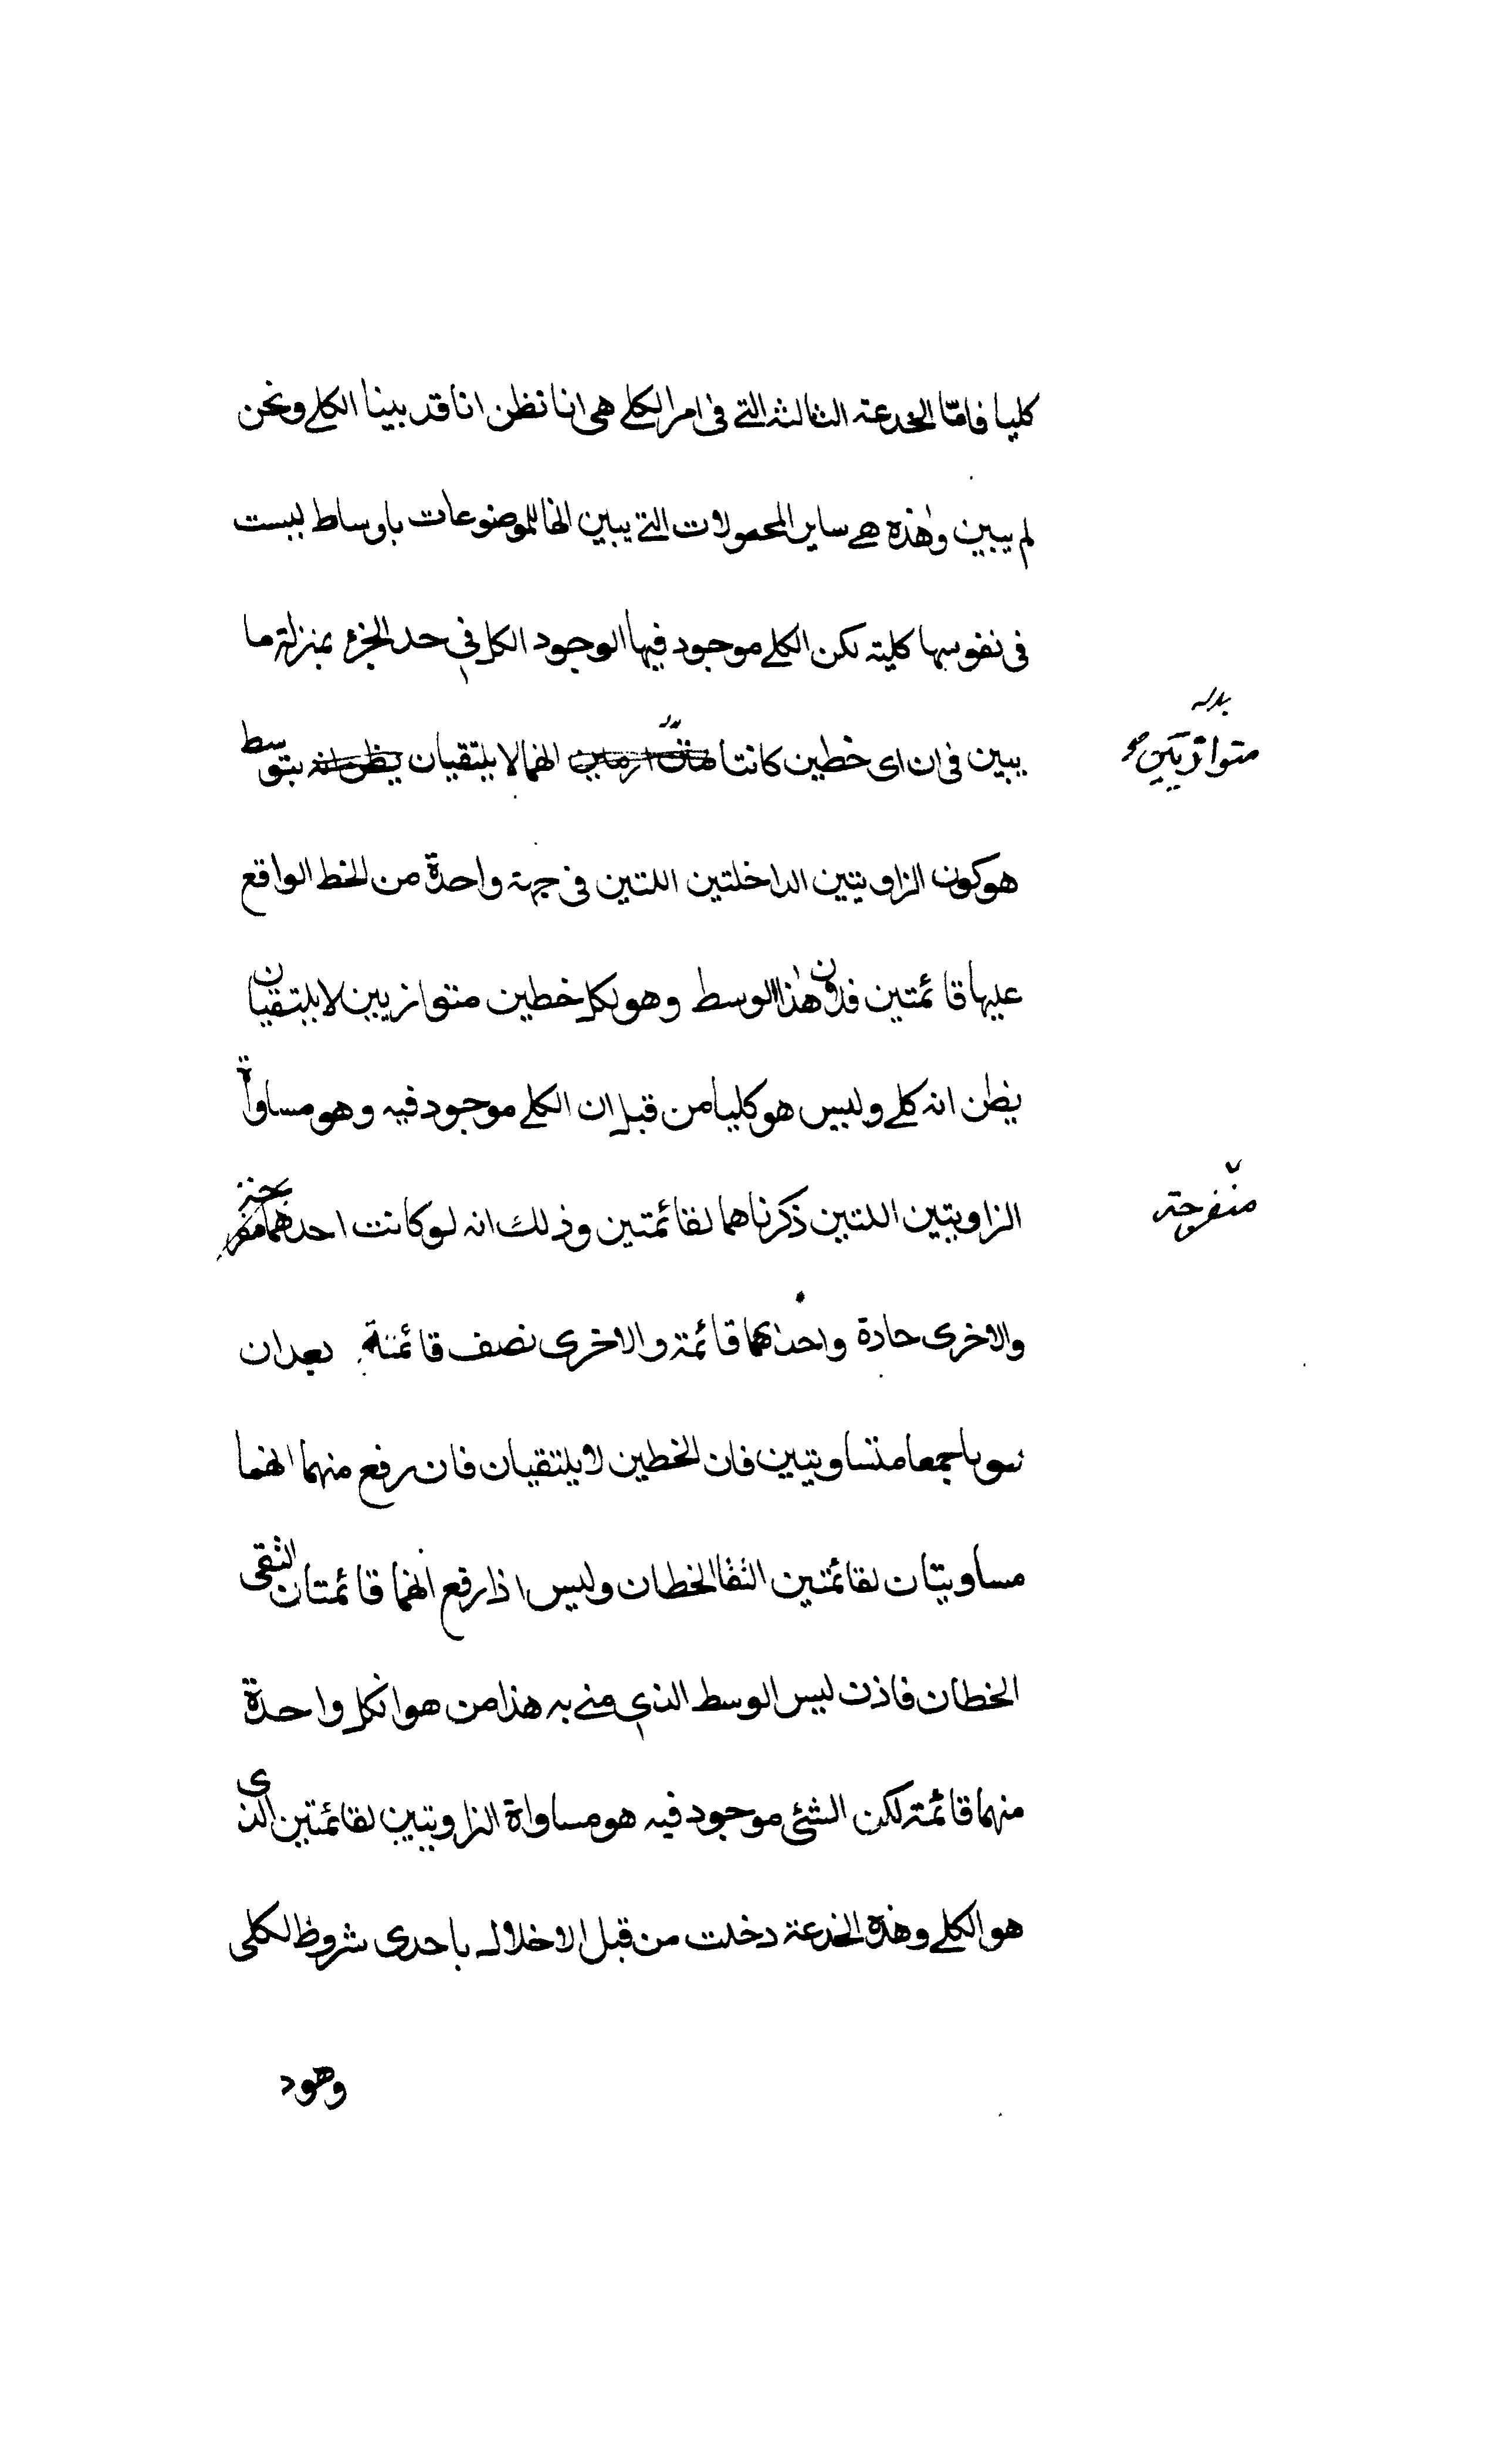 كليا فامّا الخدعة الثالثة التے فى امر الكلے هى انا نظن انا قد بينا الكلے ونحن
لم يبين وهٰذه هے ساير المحمولات التے يبين انها للموضوعات باوساط ليست
فى نفوسها كلية لكن الكلے موجود فيها الوجود الكل فى حد الجزء بمنزلة ما
يبين فى ان اى خطين كانتا انهما لا يلتقيان بتوسط
بدله
متوازيين
هو كون الزاويتين الداخلتين اللتين فى جهة واحدة من الخط الواقع
عليها قائمتين فان هٰذا الوسط وهو لكل خطين متوازيين لا يلتقيان
يظن انه كلے وليس هو كليا من قبل ان الكلے موجود فيه وهو مساواة
الزاويتين اللتين ذكرناهما لقائمتين وذلك انه لو كانت احدهما منفرجة
منفرجة
والاخرى حادة واحدٰهما قائمة والاخرى نصف قائمة بعد ان
جمعا متساويتين فان الخطين لا يلتقيان فان رفع منهما انهما
مساويتان لقائمتين التقا الخطان وليس اذا رفع انهما قائمتان التقى
الخطان فاذن ليس الوسط الذى به هذا من هو ان كل واحدة
منهما قائمة لكن الشئى موجود فيه هو مساواة الزاويتين لقائمتين الذى
هو الكلے وهذه الخدعة دخلت من قبل الاخلال باحدى شروط الكلى
وهو د